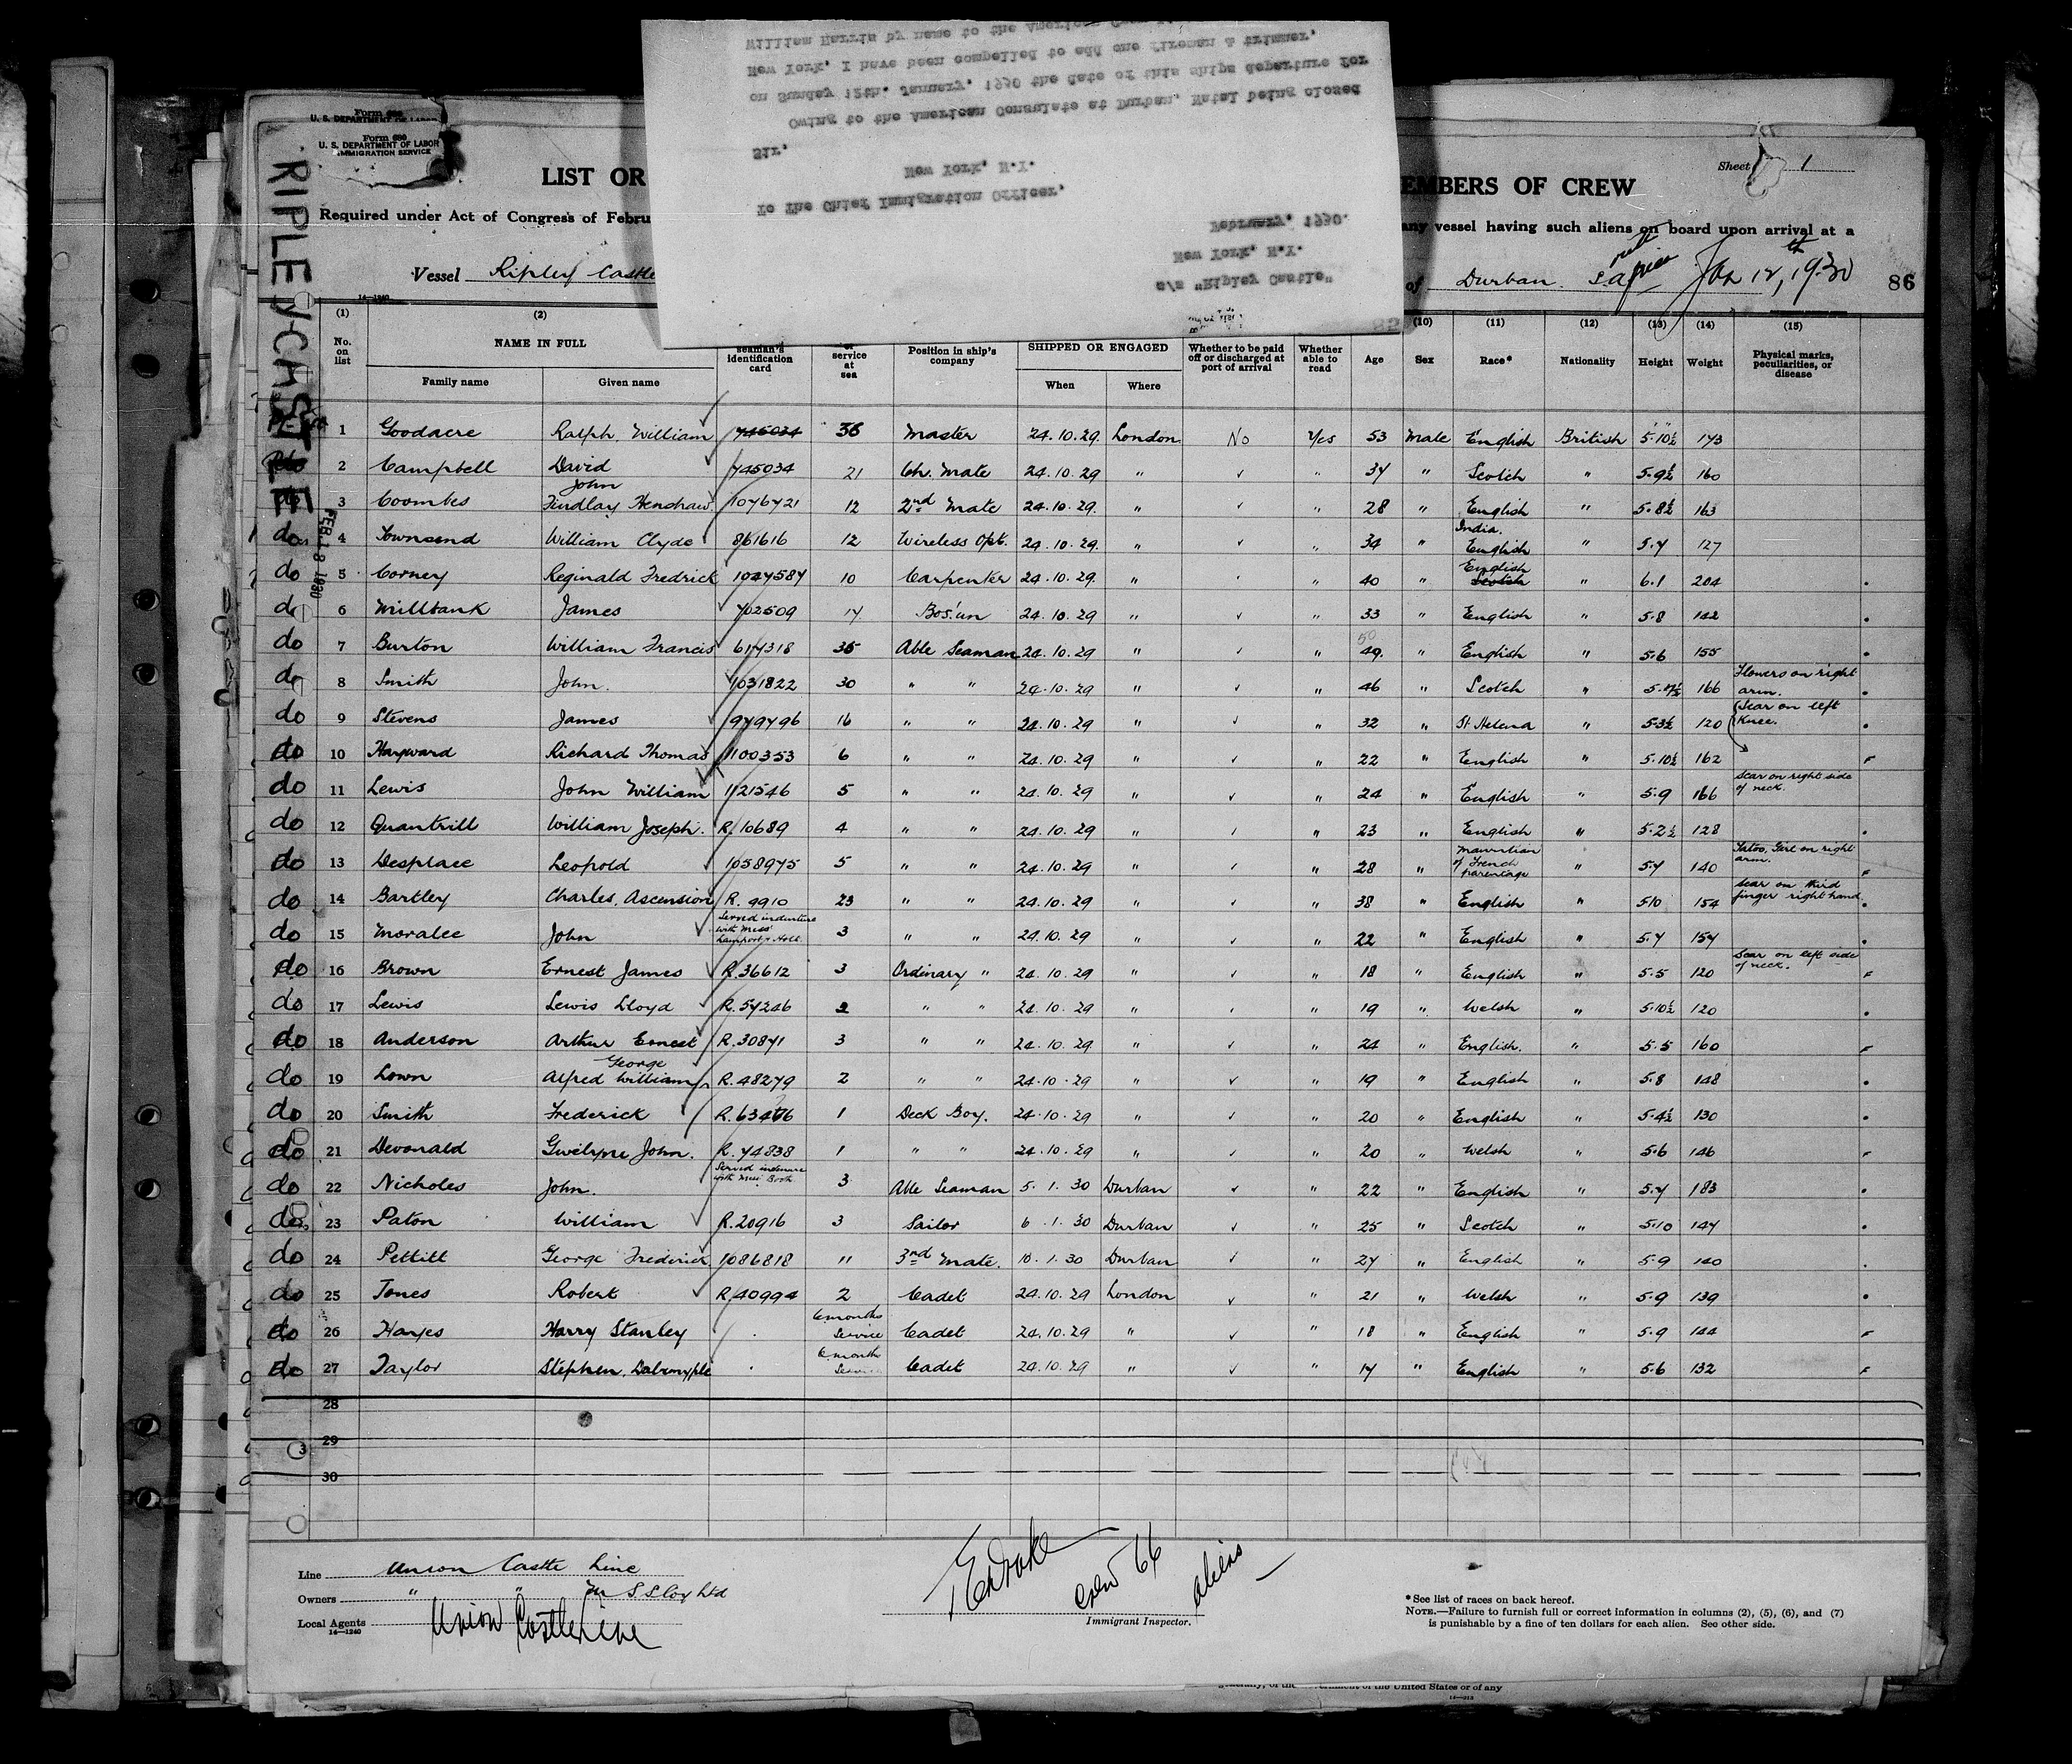 William Harris by name to the American
New York, I have been compelled to add one fireman & trimmer,
on Sunday 12th. January, 1930 the date of this ships departure for
Owing to the American Consulate at Durban, Natal being closed
Sir,
New York, N.Y.
To The Chief Immigration Officer,
February, 1930.
New York, N.Y.
s/s "Ripley Castle"
Form 680
U. S. DEPARTMENT OF LABOR
Form 680
U. S. DEPARTMENT OF LABOR
IMMIGRATION SERVICE
RIPLEY CASTLE
FEB 18 1930
Sheet 1
LIST OR EMBERS OF CREW
Required under Act of Congress of Febru any vessel having such aliens on board upon arrival at a
Vessel Ripley Castle of Durban Jan 12, 19th 30 86
14—1240
(1) (2) (10) (11) (12) (13) (14) (15)
No. on list NAME IN FULL seaman's identification card service at sea Position in ship's company SHIPPED OR ENGAGED Whether to be paid off or discharged at port of arrival Whether able to read Age Sex Race* Nationality Height Weight Physical marks, peculiarities, or disease
Family name Given name When Where
1 Goodacre Ralph. William 745034 36 Master 24.10.29. London No Yes 53 Male English British 5-10½ 173
2 Campbell David 745034 21 Ch. Mate 24.10.29 " ✓ " 37 " Scotch " 5-9½ 160
do 3 Coombes John Findlay Henshaw 1076721 12 2nd Mate 24.10.29. " ✓ " 28 " English " 5-8½ 163
do 4 Townsend William Clyde 861616 12 Wireless Opt. 24.10.29. " ✓ " 34 " India. English " 5.7 127
do 5 Corney Reginald Fredrick 1047587 10 Carpenter 24.10.29. " " 40 " English Scotch " 6.1 204
do 6 Millbank James 702509 17 Bos'un 24.10.29 " ✓ " 33 " English " 5.8 142
do 7 Burton William Francis 617318 35 Able Seaman 24.10.29 " ✓ " 50 49. " English " 5.6 155
do 8 Smith John. 1031822 30 " " 24.10.29 " ✓ " 46 " Scotch " 166 Flowers on right arm.
do 9 Stevens James 979796 16 " " 24.10.29 " ✓ " 32 " St Helena " 5-3½ 120 Scar on left Knee.
do 10 Hayward Richard Thomas 1100353 6 " " 24.10.29 " ✓ " 22 " English " 5.10½ 162
do 11 Lewis John William 1121546 5 " " 24.10.29 " ✓ " 24 " English " 5.9 166 Scar on right side of neck.
do 12 Quantrill William Joseph. R.10689 4 " " 24.10.29 " ✓ " 23 " English " 5.2½ 128
do 13 Desplace Leopold 1058975 5 " " 24.10.29 " ✓ " 28 " Mauritian of French parentage " 5.7 140 Tatoo, Girl on right arm.
do 14 Bartley Charles. Ascension R. 9910 23 " " 24.10.29 " ✓ " 38 " English " 5.10 154 Scar on third finger right hand
do 15 Moralee John Served indenture with Mess' Lamport & Holt 3 " " 24.10.29 " ✓ " 22 " English " 5.7 157
do 16 Brown Ernest James R.36612 3 Ordinary " 24.10.29 " ✓ " 18 " English " 5.5 120 Scar on left side of neck.
do 17 Lewis Lewis Lloyd R.57246 2 " " 24.10.29 " " 19 " Welsh " 5.10½ 120
do 18 Anderson Arthur Ernest R.30871 3 " " 24.10.29 " ✓ " 24 " English. " 5.5 160
do 19 Lown George Alfred William R.48279 2 " " 24.10.29 " ✓ " 19 " English " 5.8 148
do 20 Smith Frederick 1 Deck Boy. 24.10.29 " ✓ " 20 " English " 5.4½ 130
do 21 Devonald Gwilyme John. R.74838 1 " " 24.10.29 " ✓ " 20 " Welsh " 5.6 146
do 22 Nicholes John. Served indenture with Mess' Booth 3 Able Seaman 5.1.30 Durban ✓ " 22 " English " 5.7 183
do 23 Paton William R.20916 3 Sailor 6.1.30 Durban ✓ " 25 " Scotch " 5.10 147
do 24 Pettitt George Frederick 1086818 11 3rd Mate. 10.1.30 Durban ✓ " 27 " English " 5.9 140
do 25 Jones Robert R.40994 2 Cadet 24.10.29 London ✓ " 21 " Welsh " 5.9 139
do 26 Hayes Harry Stanley 6 months Service Cadet 24.10.29 " ✓ " 18 " English " 5.9 144
do 27 Taylor Stephen. Dalrymple 6 month Service Cadet 24.10.29 " ✓ " 17 " English " 5.6 132
28
29
30
Line Union Castle Line
Owners " " S.S. Coy Ltd
Local Agents Union Castle Line
14—1240
crew 66 aliens
Immigrant Inspector.
*See list of races on back hereof.
NOTE.—Failure to furnish full or correct information in columns (2), (5), (6), and (7)
is punishable by a fine of ten dollars for each alien. See other side.
of the United States or of any